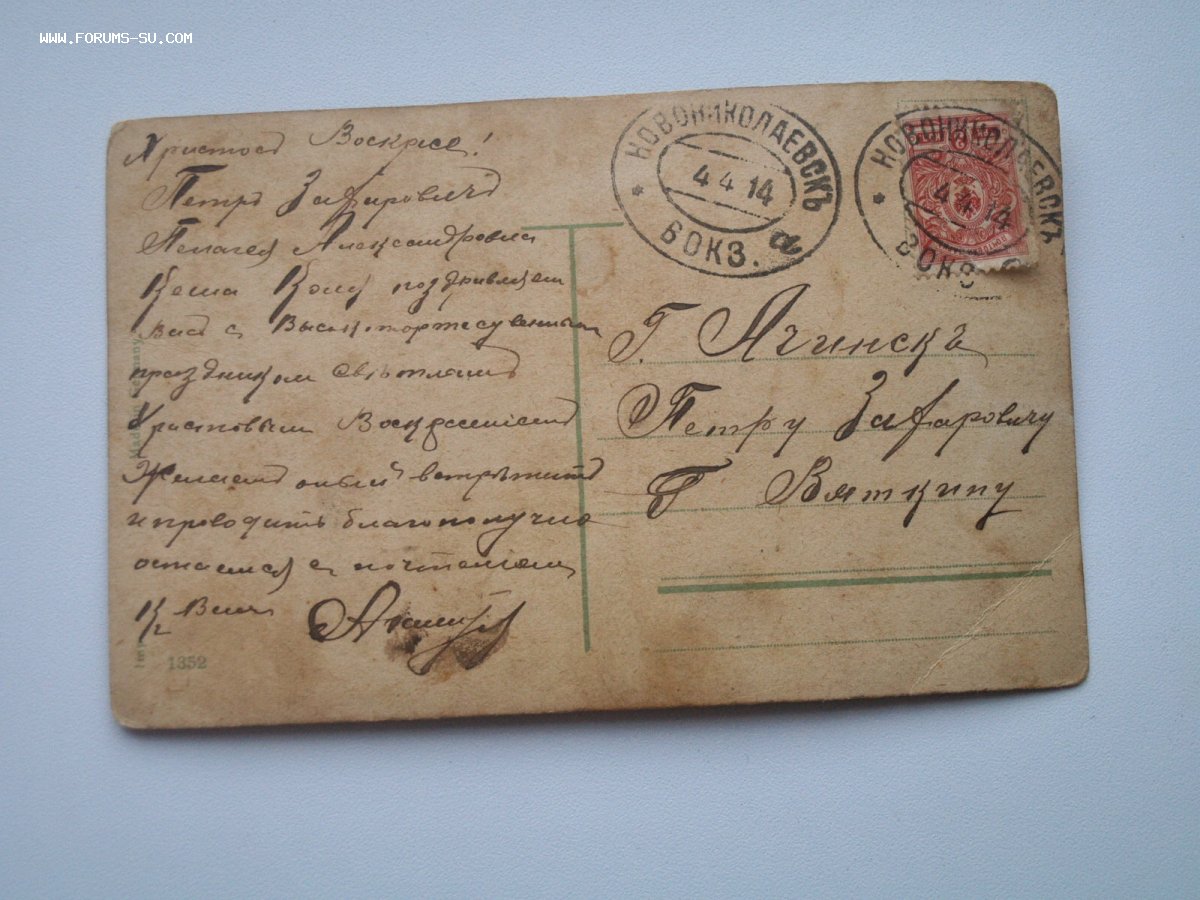 WWW.FORUMS-SU.COM
Христосъ Воскресе!
Петръ Захаровичъ
Пелагея Александровна
Кеша Коля поздравляем
васъ с Высокоторжественным
праздником свѣтлымъ
Христовым Воскресениемъ
Желаемъ оный встрѣтить
и проводить благополучно
остаемся с почтением
к Вам
1352
НОВОНИКОЛАЕВСКЪ
4 4 14
ВОКЗ. а
НОВОНИКОЛАЕВСКЪ
4 4 14
ВОКЗ.
Г. Ачинскъ
Петру Захаровичу
Г Вяткину